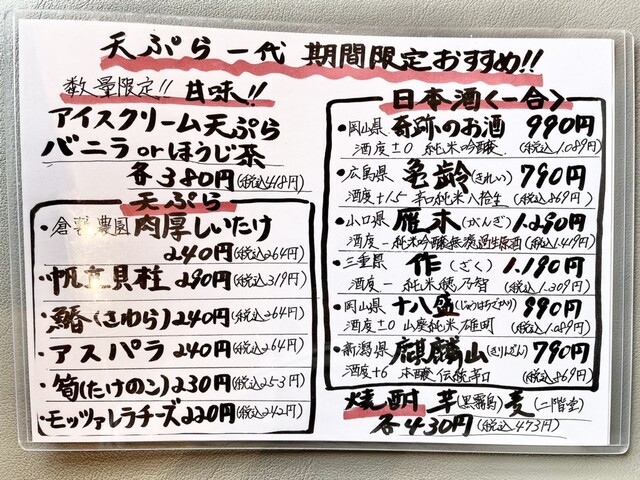 天ぷら一代 期間限定おすすめ!!
数量限定!! 甘味!!
アイスクリーム天ぷら
バニラorほうじ茶
各380円(税込418円)
天ぷら
農園 肉厚しいたけ
240円(税込264円)
・帆立貝柱 290円(税込319円)
・鰆(さわら)240円(税込264円)
・アスパラ 240円(税込264円)
・筍(たけのこ)230円(税込253円)
・モッツァレラチーズ220円(税込242円)
日本酒<一合>
・岡山県 奇跡のお酒 990円
酒度±0 純米吟醸 (税込1.089円)
・広島県 亀齢(きれい) 790円
酒度+1.5 辛口純米八拾生 (税込869円)
・山口県 雁木(がんぎ) 1.290円
酒度- 純米吟醸無濾過生原酒(税込1.419円)
・三重県 作(ざく) 1.190円
酒度- 純米穂乃智 (税込1.309円)
・岡山県 十八盛(じゅうはちざかり) 990円
酒度±0 山廃純米雄町 (税込1.089円)
・新潟県 麒麟山(きりんざん) 790円
酒度+6 本醸 伝統辛口 (税込869円)
焼酎 芋(黒霧島) 麦(二階堂)
各430円(税込473円)